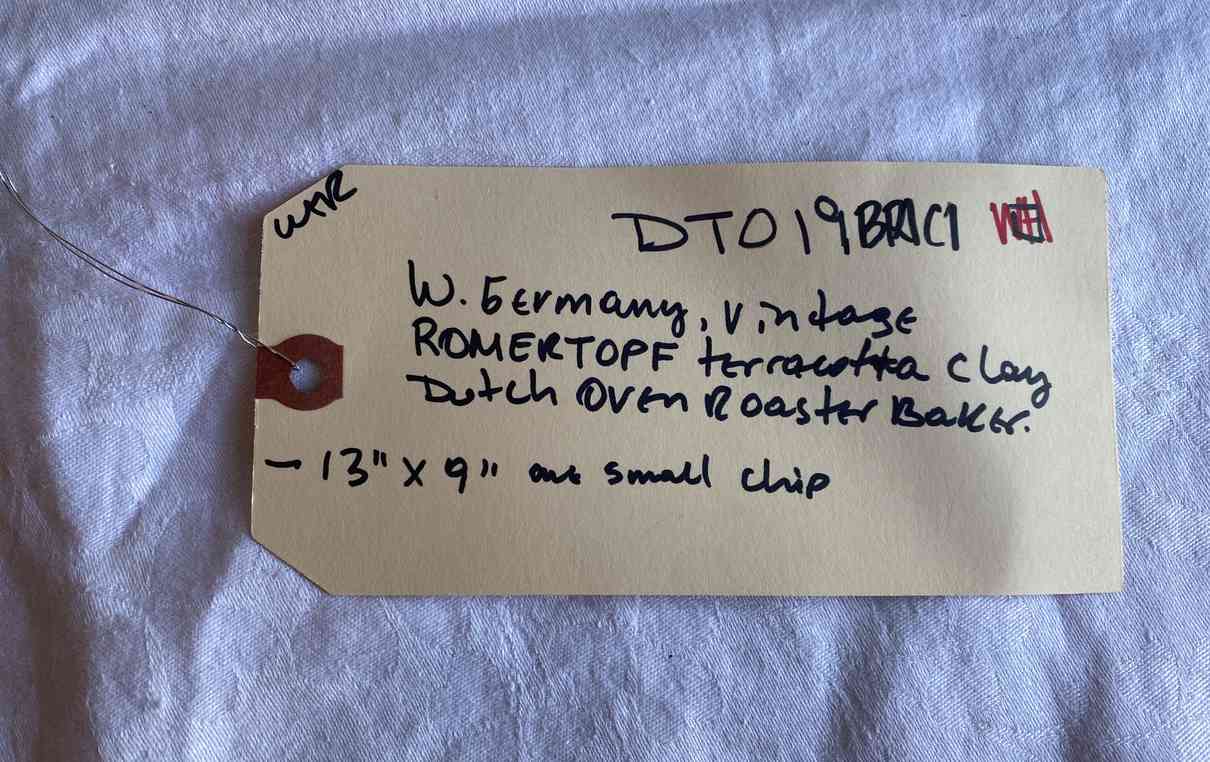 DT019BRIC1
W. Germany, Vintage
ROMERTOPF terracotta clay
Dutch Oven Roaster Baker.
- 13" x 9" one small chip